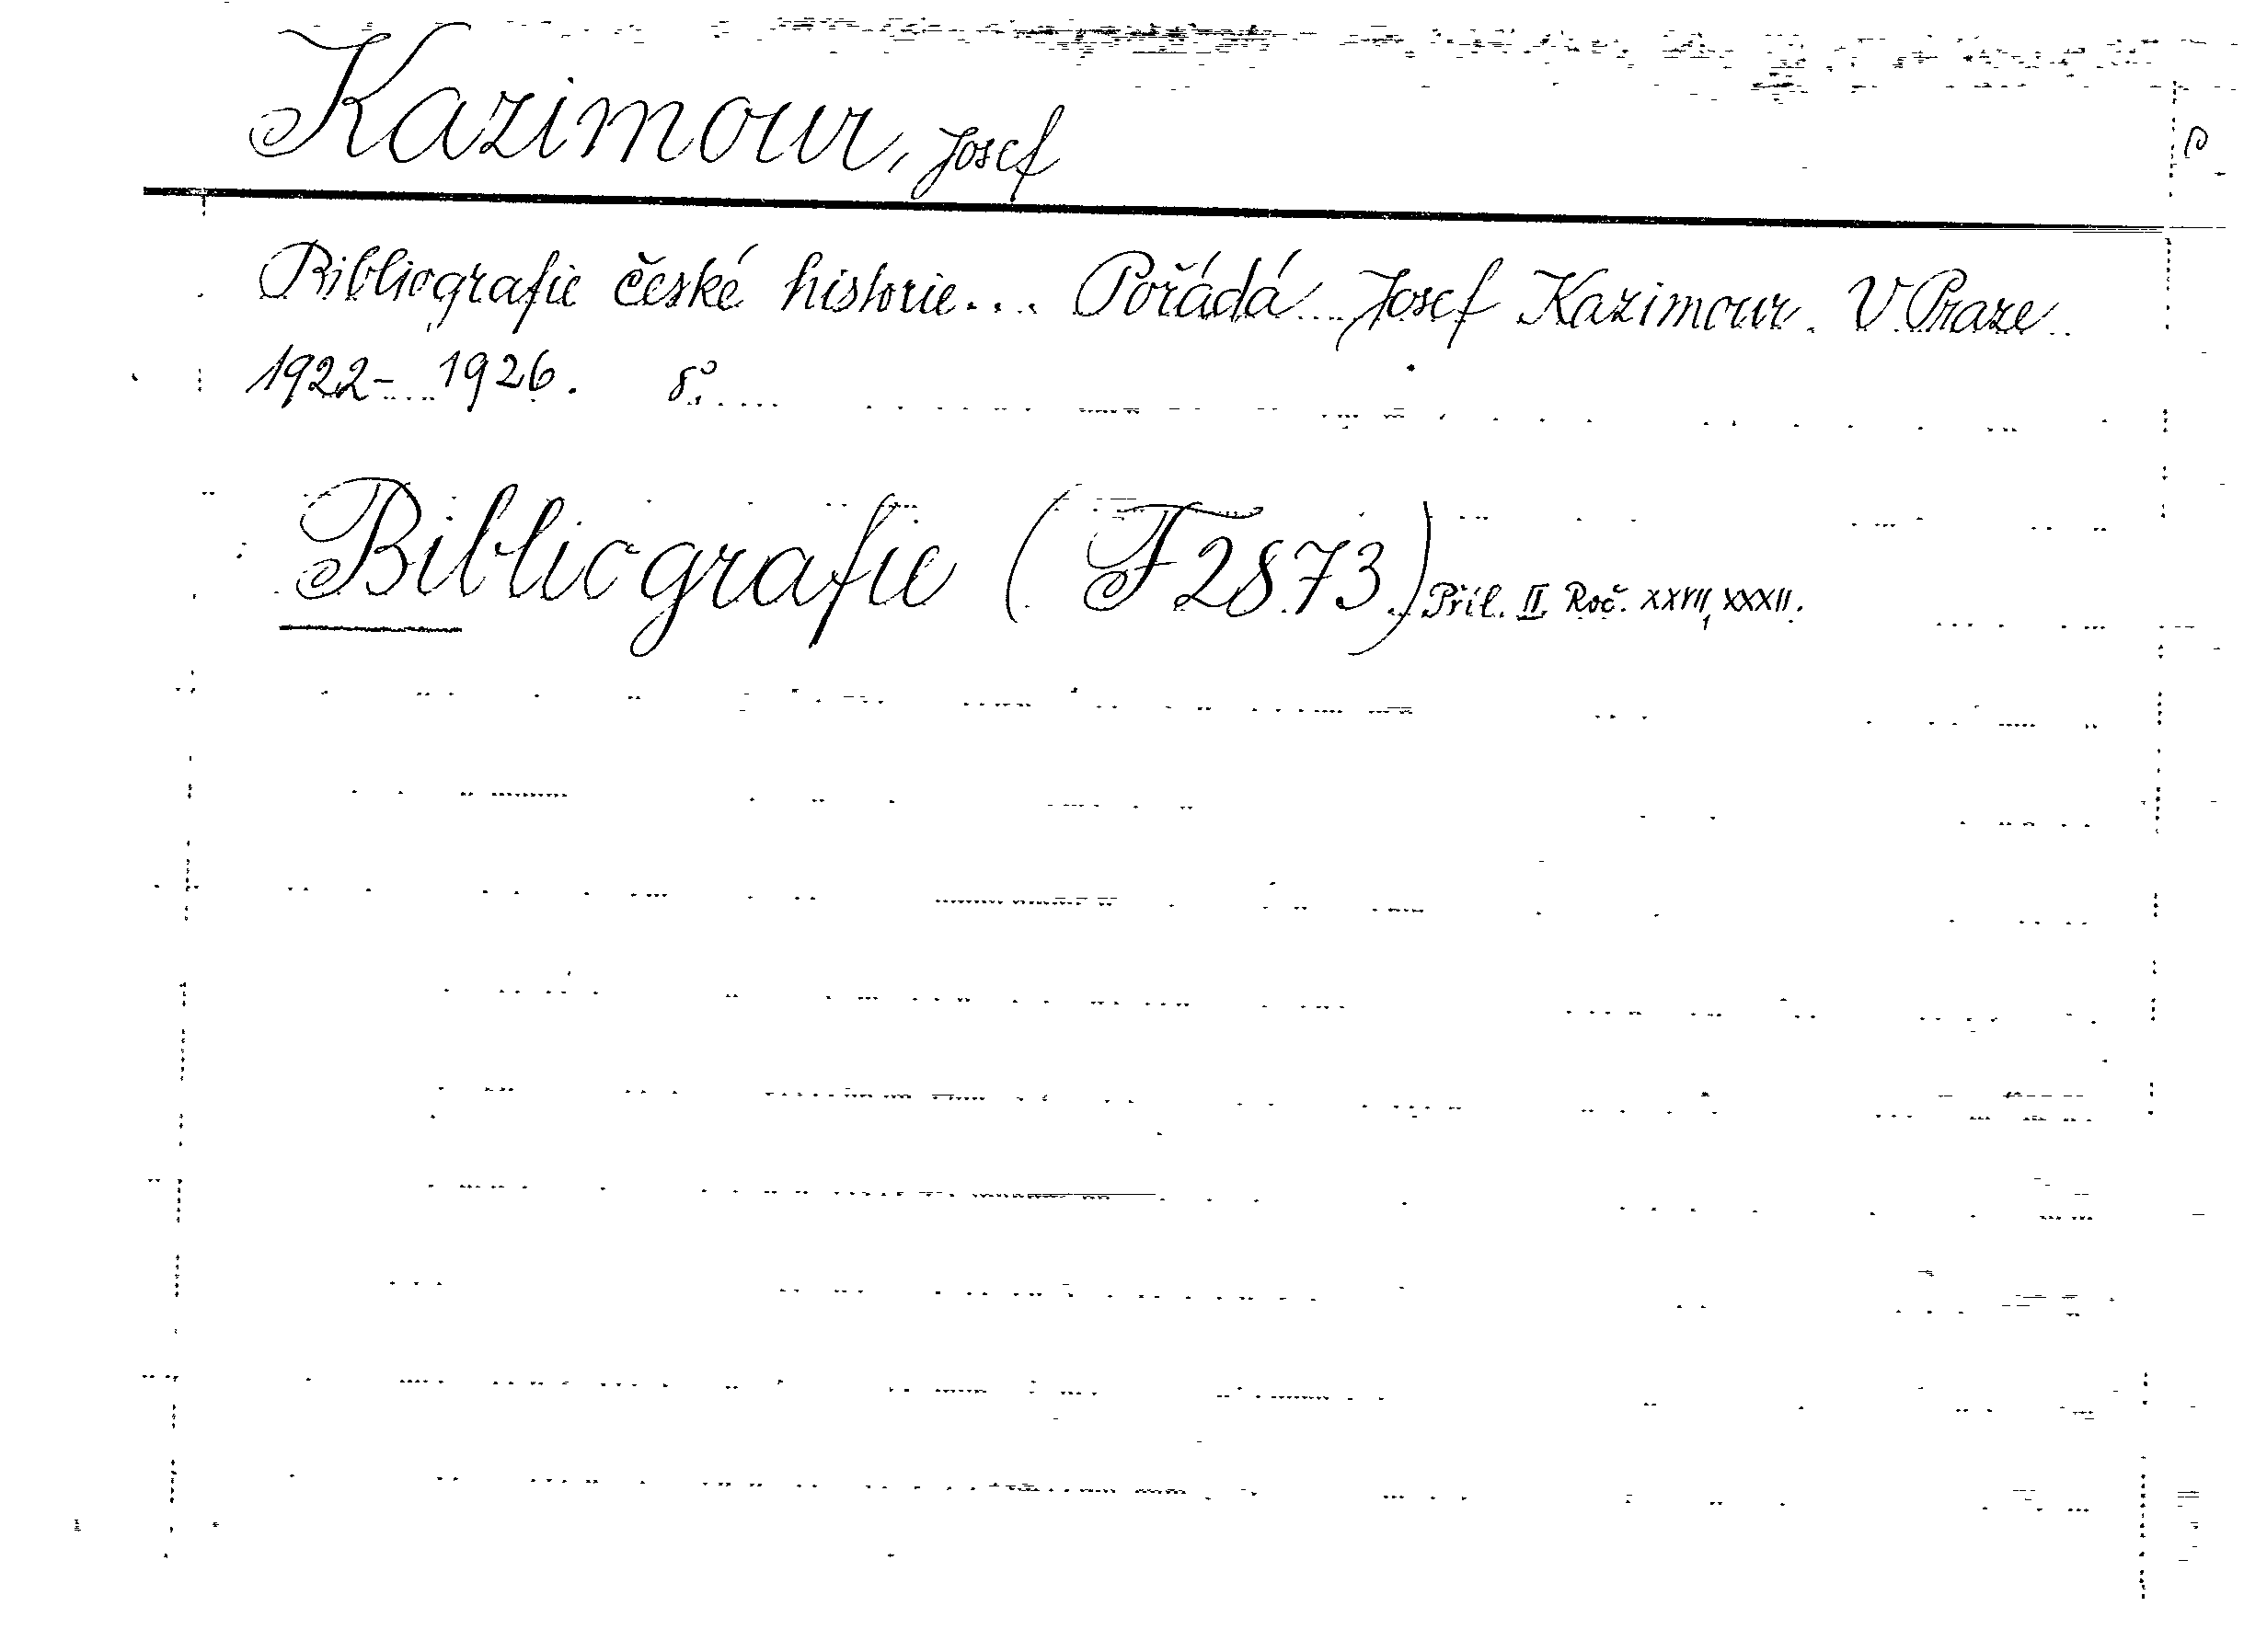 Kazimour, Josef
Bibliografie české historie... Pořádá Josef Kazimour. V Praze
1922-1926. 8°.
Bibliografie (F 2873) Příl. II. Roč. XXVII, XXXII.